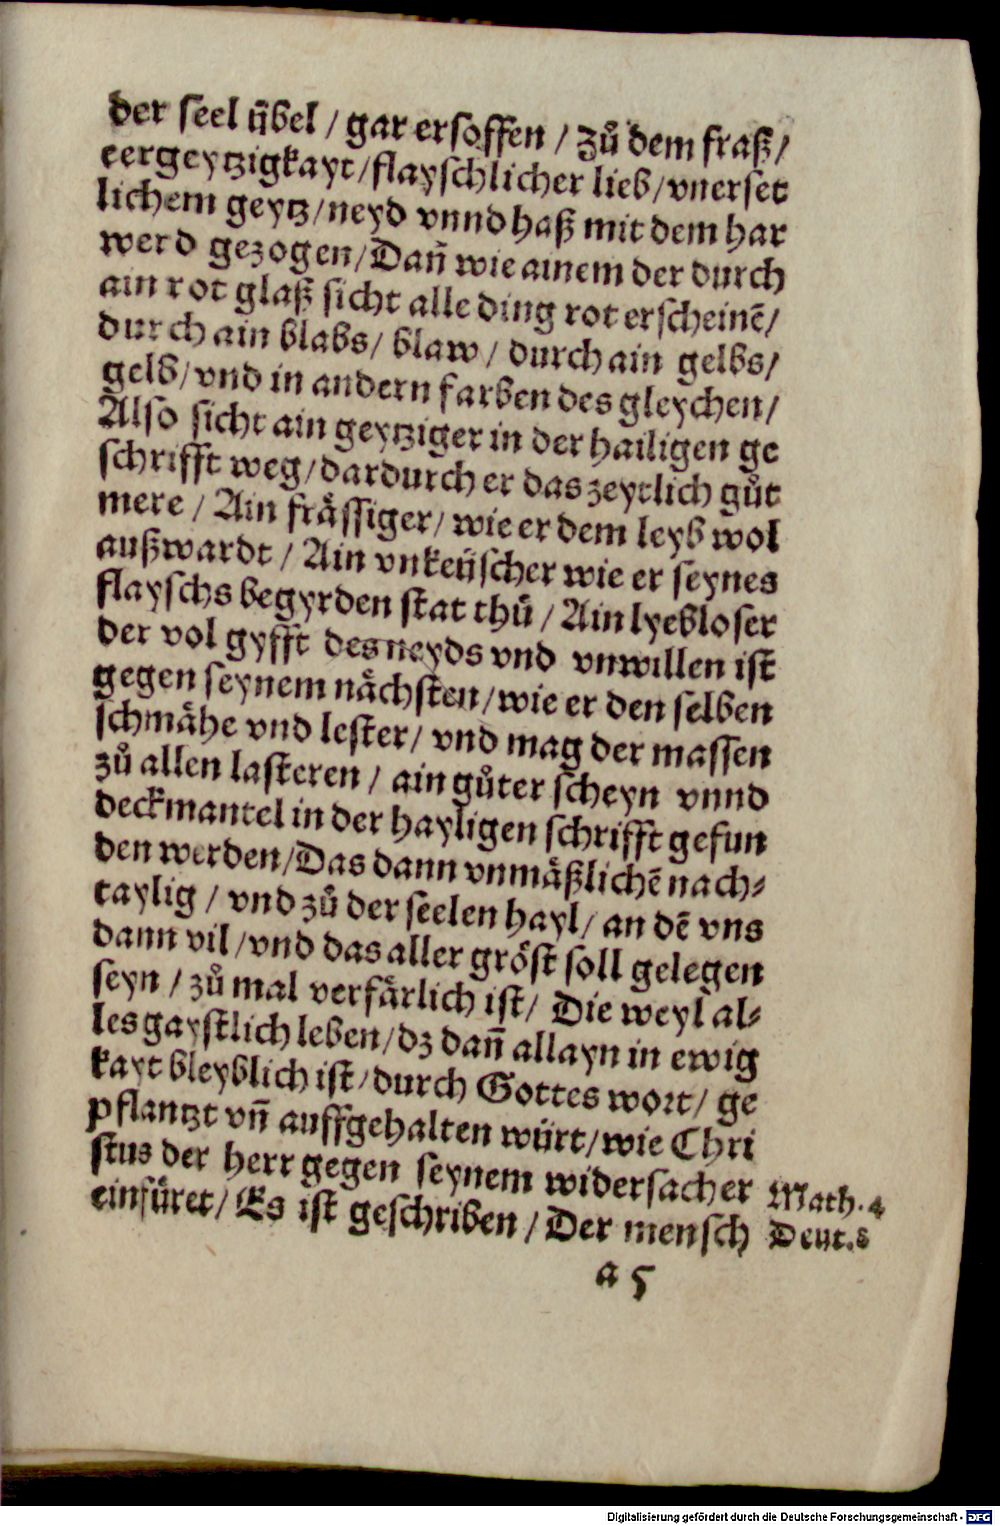 der seel ÿbel / gar ersoffen / zů dem fraß /
eergeytzigkayt / flayschlicher lieb / vnerset
lichem geytz / neyd vnnd haß mit dem har
werd gezogen / Dañ wie ainem der durch
ain rot glaß sicht alle ding rot erscheinē /
durch ain blabs / blaw / durch ain gelbs /
gelb / vnd in andern farben des gleychen /
Also sicht ain geytziger in der hailigen ge
schrifft weg / dardurch er das zeytlich gůt
mere / Ain fråssiger / wie er dem leyb wol
außwardt / Ain vnkeÿscher wie er seynes
flayschs begyrden stat thů / Ain lyebloser
der vol gyfft des neyds vnd vnwillen ist
gegen seynem nåchsten / wie er den selben
schmåhe vnd lester / vnd mag der massen
zů allen lasteren / ain gůter scheyn vnnd
deckmantel in der hayligen schrifft gefun
den werden / Das dann vnmåßlichē nach⸗
taylig / vnd zů der seelen hayl / an dē vns
dann vil / vnd das aller gröst soll gelegen
seyn / zů mal verfårlich ist / Die weyl al⸗
les gaystlich leben / dz dañ allayn in ewig
kayt bleyblich ist / durch Gottes wort / ge
pflantzt vñ auffgehalten würt / wie Chri
stus der herr gegen seynem widersacher
einfüret / Es ist geschriben / Der mensch
Math. 4
Deut. 8
a 5
Digitalisierung gefördert durch die Deutsche Forschungsgemeinschaft - DFG